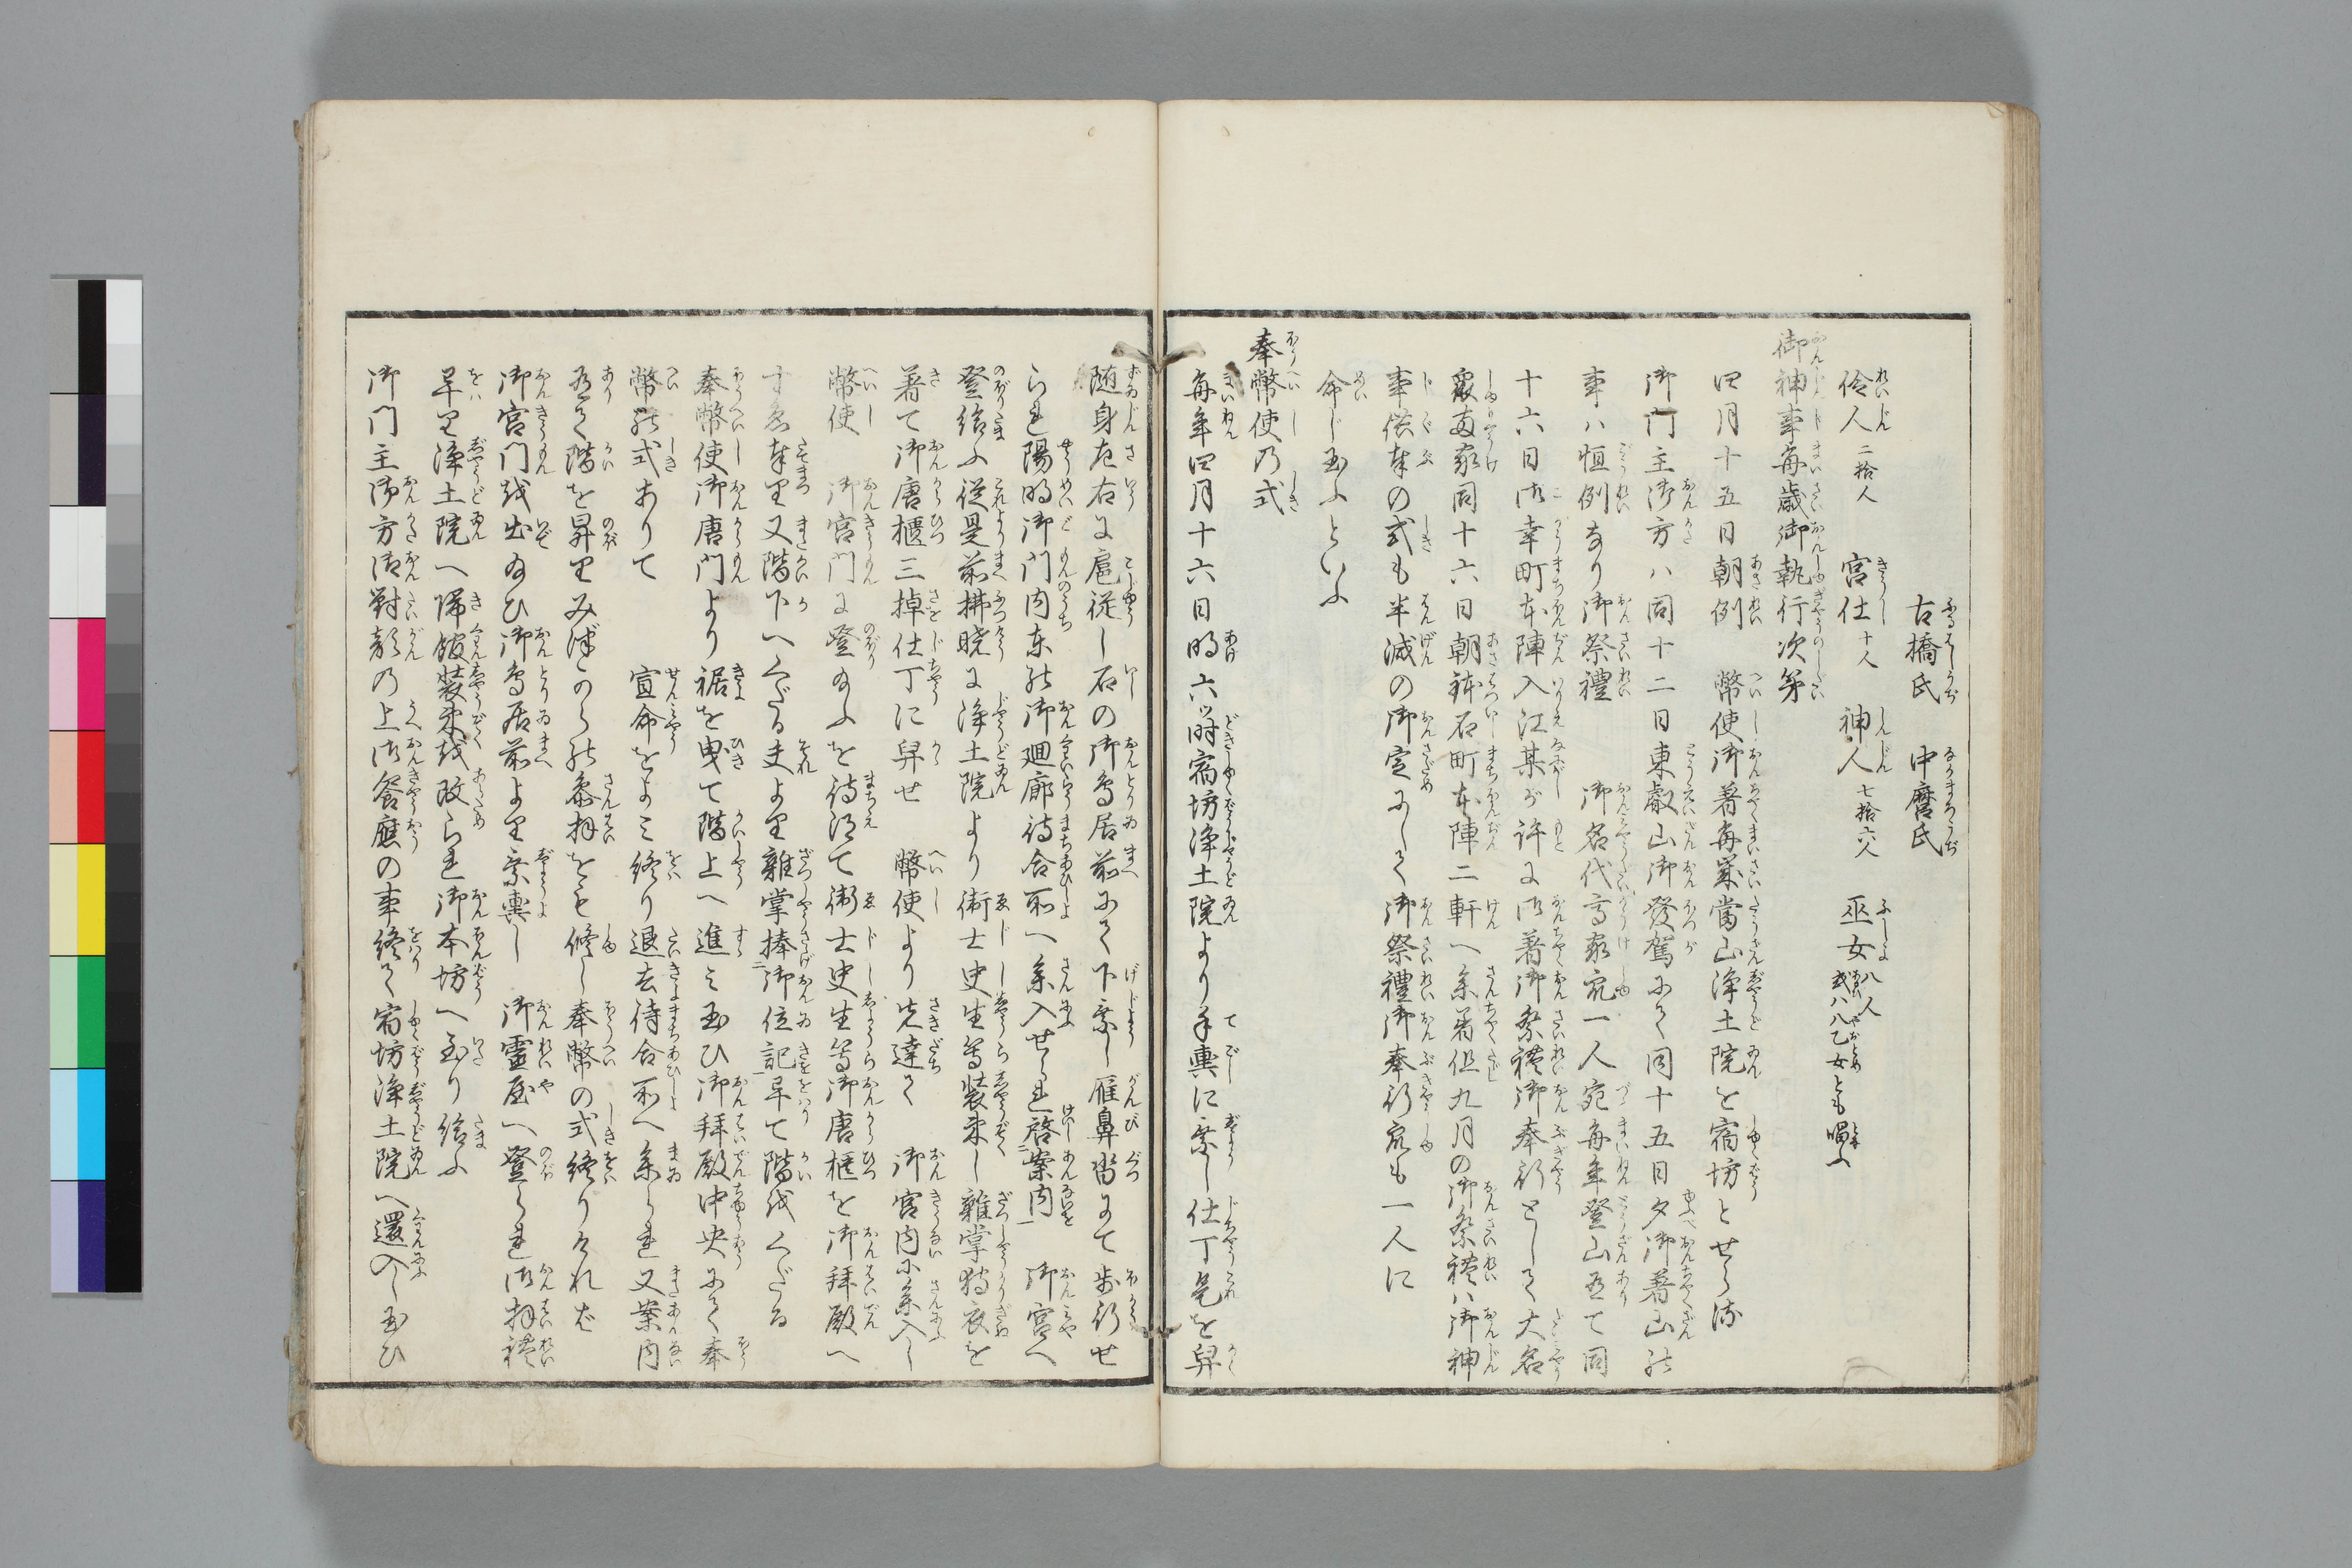 古橋氏　中麿氏
伶人二拾人　宮仕十人　神人七拾六人　巫女八人或八乙女とも唱ふ
御神事毎歳御執行次第
四月十五日朝例　幣使御着毎歳當山浄土院を宿坊とせらる
御門主御方ハ同十二日東叡山御發駕にて同十五日夕御著山の
事ハ恒例なり御祭禮　御名代高家衆一人宛毎年登山有て同
十六日御幸町本陣入江某が許に御着御祭礼御奉行として大名
衆両家同十六日朝鉢石町本陣二軒へ参着但九月の御祭礼ハ御神
事供奉の式も半減の御定にして御祭禮御奉行衆も一人に
命じ玉ふといふ
奉幣使の式
毎年四月十六日明六ツ時宿坊浄土院より手輿に乗し仕丁是を舁
随身左右に扈従し石の御鳥居前にて下乗し雁鼻沓にて歩行せ
られ陽明御門内東の御廻廊待合所へ参入せられ啓案内　御宮へ
登給ふ従是前拂暁に浄土院より衛士史生等装束し雑掌狩衣を
着て御唐櫃三掉仕丁に舁せ　幣使より先達て　御宮内に参入し
幣使　御宮門に登給ふを待得て衛士史生等御唐櫃を御拜殿へ
すゑ奉り又階下へくだる夫より雑掌捧御位記早て階をくだる
奉幣使御唐門より裾を曳て階上へ進ミ玉ひ御拜殿中央にて奉
幣の式ありて　宣命をよミ終り退去待合所へ参られ又案内
有て階を昇りみづからの参拝をも修し奉幣の式終りぬれば
御宮門を出給ひ御鳥居前より乗輿し　御靈屋へ登られ御拝礼
早り浄土院へ帰館装束を改られ御本坊へ至り給ふ
御門主御方御對顔の上御饗應の事終て宿坊浄土院へ還入し玉ひ